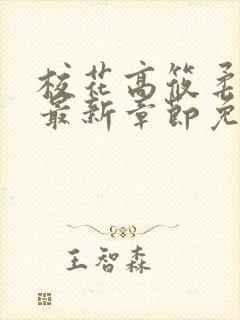 校花高筱柔
最新章節免
王智森